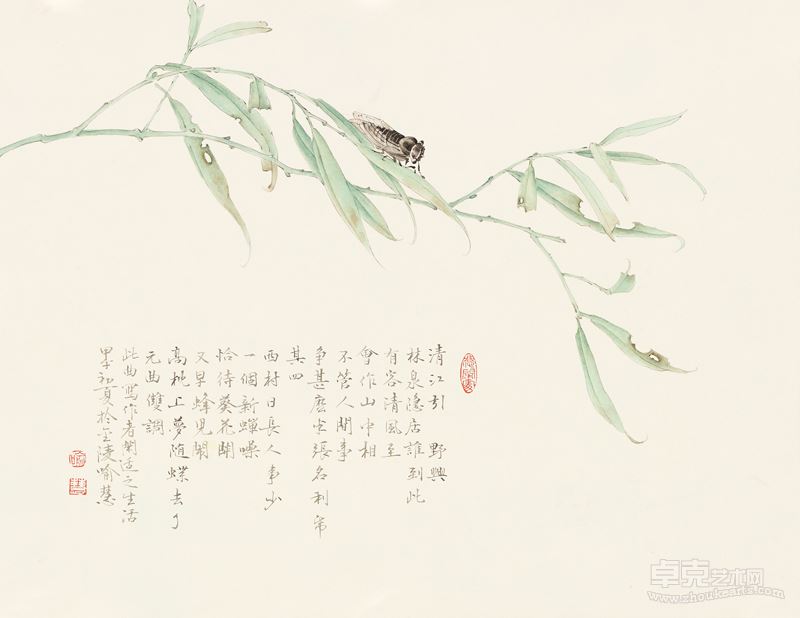 清江引 野興
林泉隱居誰到此
有客清風至
會作山中相
不管人間事
爭甚麽半張名利帋
其四
西村日長人事少
一個新蟬噪
恰待葵花開
又早蜂兒鬧
高枕上夢隨蝶去了
元曲雙調
此曲寫作者閑适之生活
畢初夏於金陵喻慧
卓克艺术网
www.zhoukearts.com